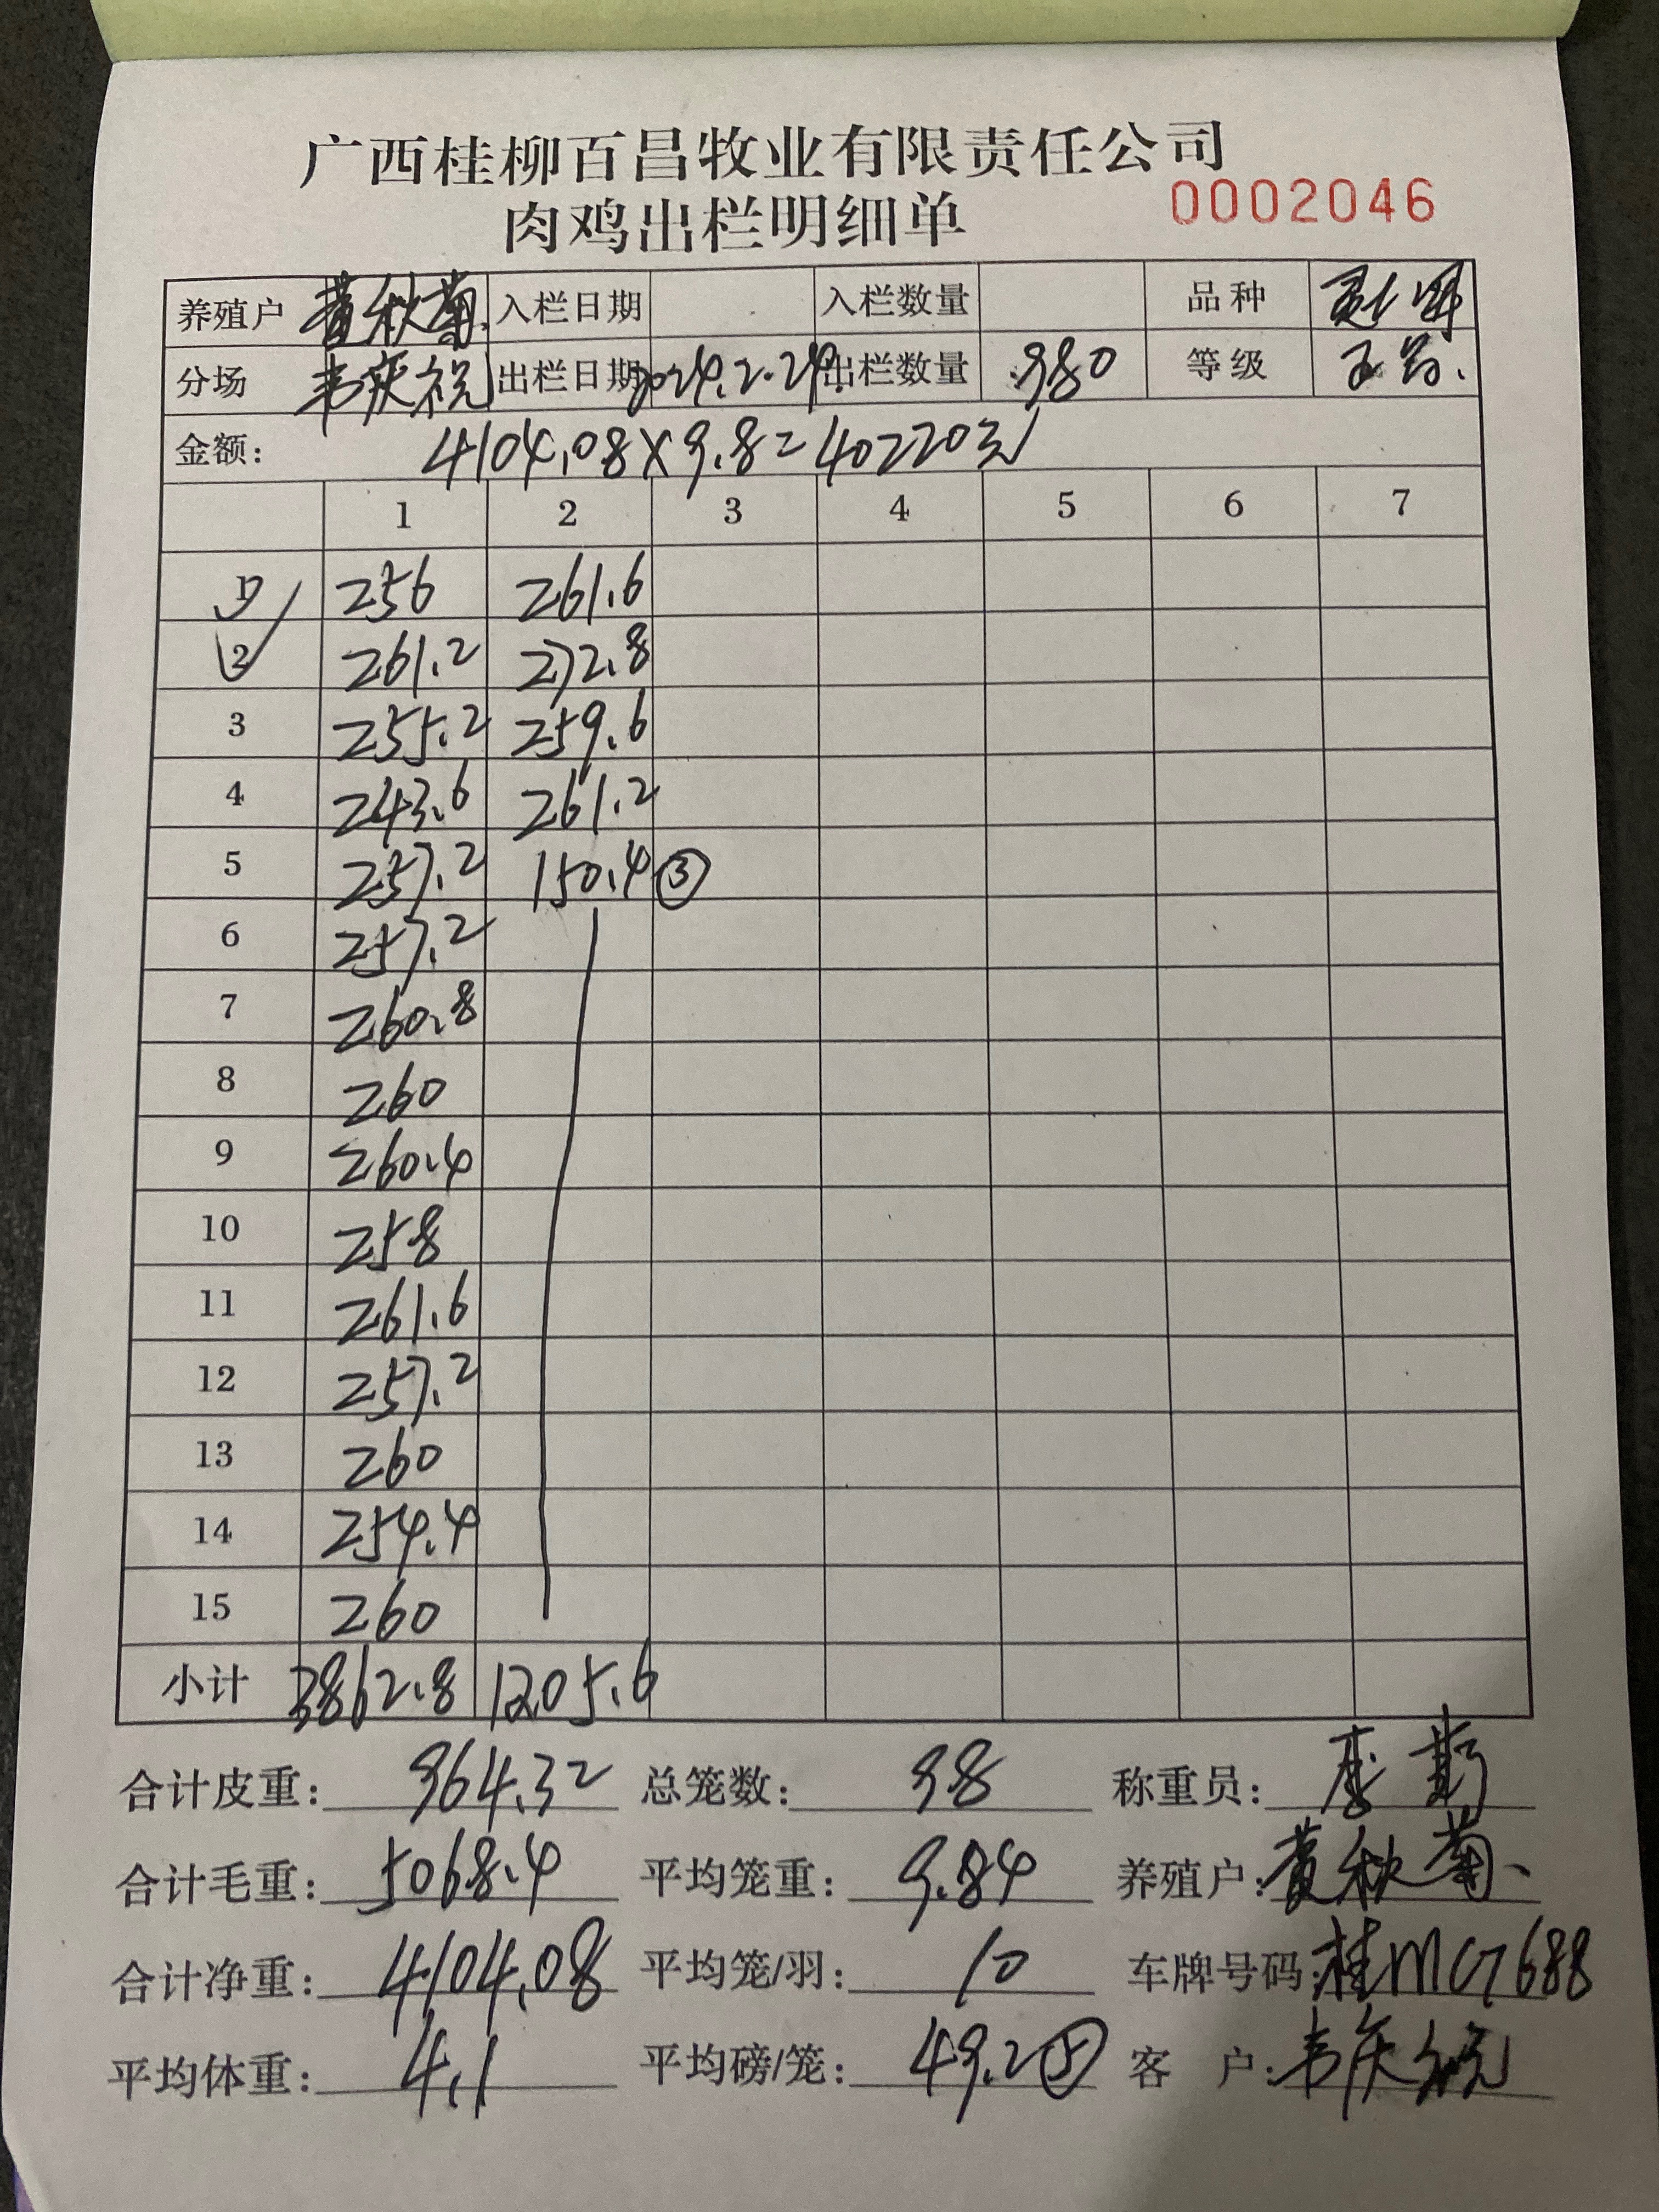 广西桂柳百昌牧业有限责任公司
肉鸡出栏明细单 0002046
养殖户 黄秋菊 入栏日期 入栏数量 品种
分场 韦庆祝 出栏日期 2024.2.24 出栏数量 980 等级
金额: 4104.08×9.8=40220元
1 2 3 4 5 6 7
1 256 261.6
2 261.2 272.8
3 255.2 259.6
4 243.6 261.2
5 257.2 150.4 ③
6 257.2
7 260.8
8 260
9 260.4
10 258
11 261.6
12 257.2
13 260
14 254.4
15 260
小计 3862.8 1205.6
合计皮重: 964.32 总笼数: 98 称重员:
合计毛重: 5068.4 平均笼重: 9.84 养殖户: 黄秋菊
合计净重: 4104.08 平均笼/羽: 10 车牌号码:
平均体重: 4.1 平均磅/笼: 49.2 ⑤ 客户: 韦庆祝